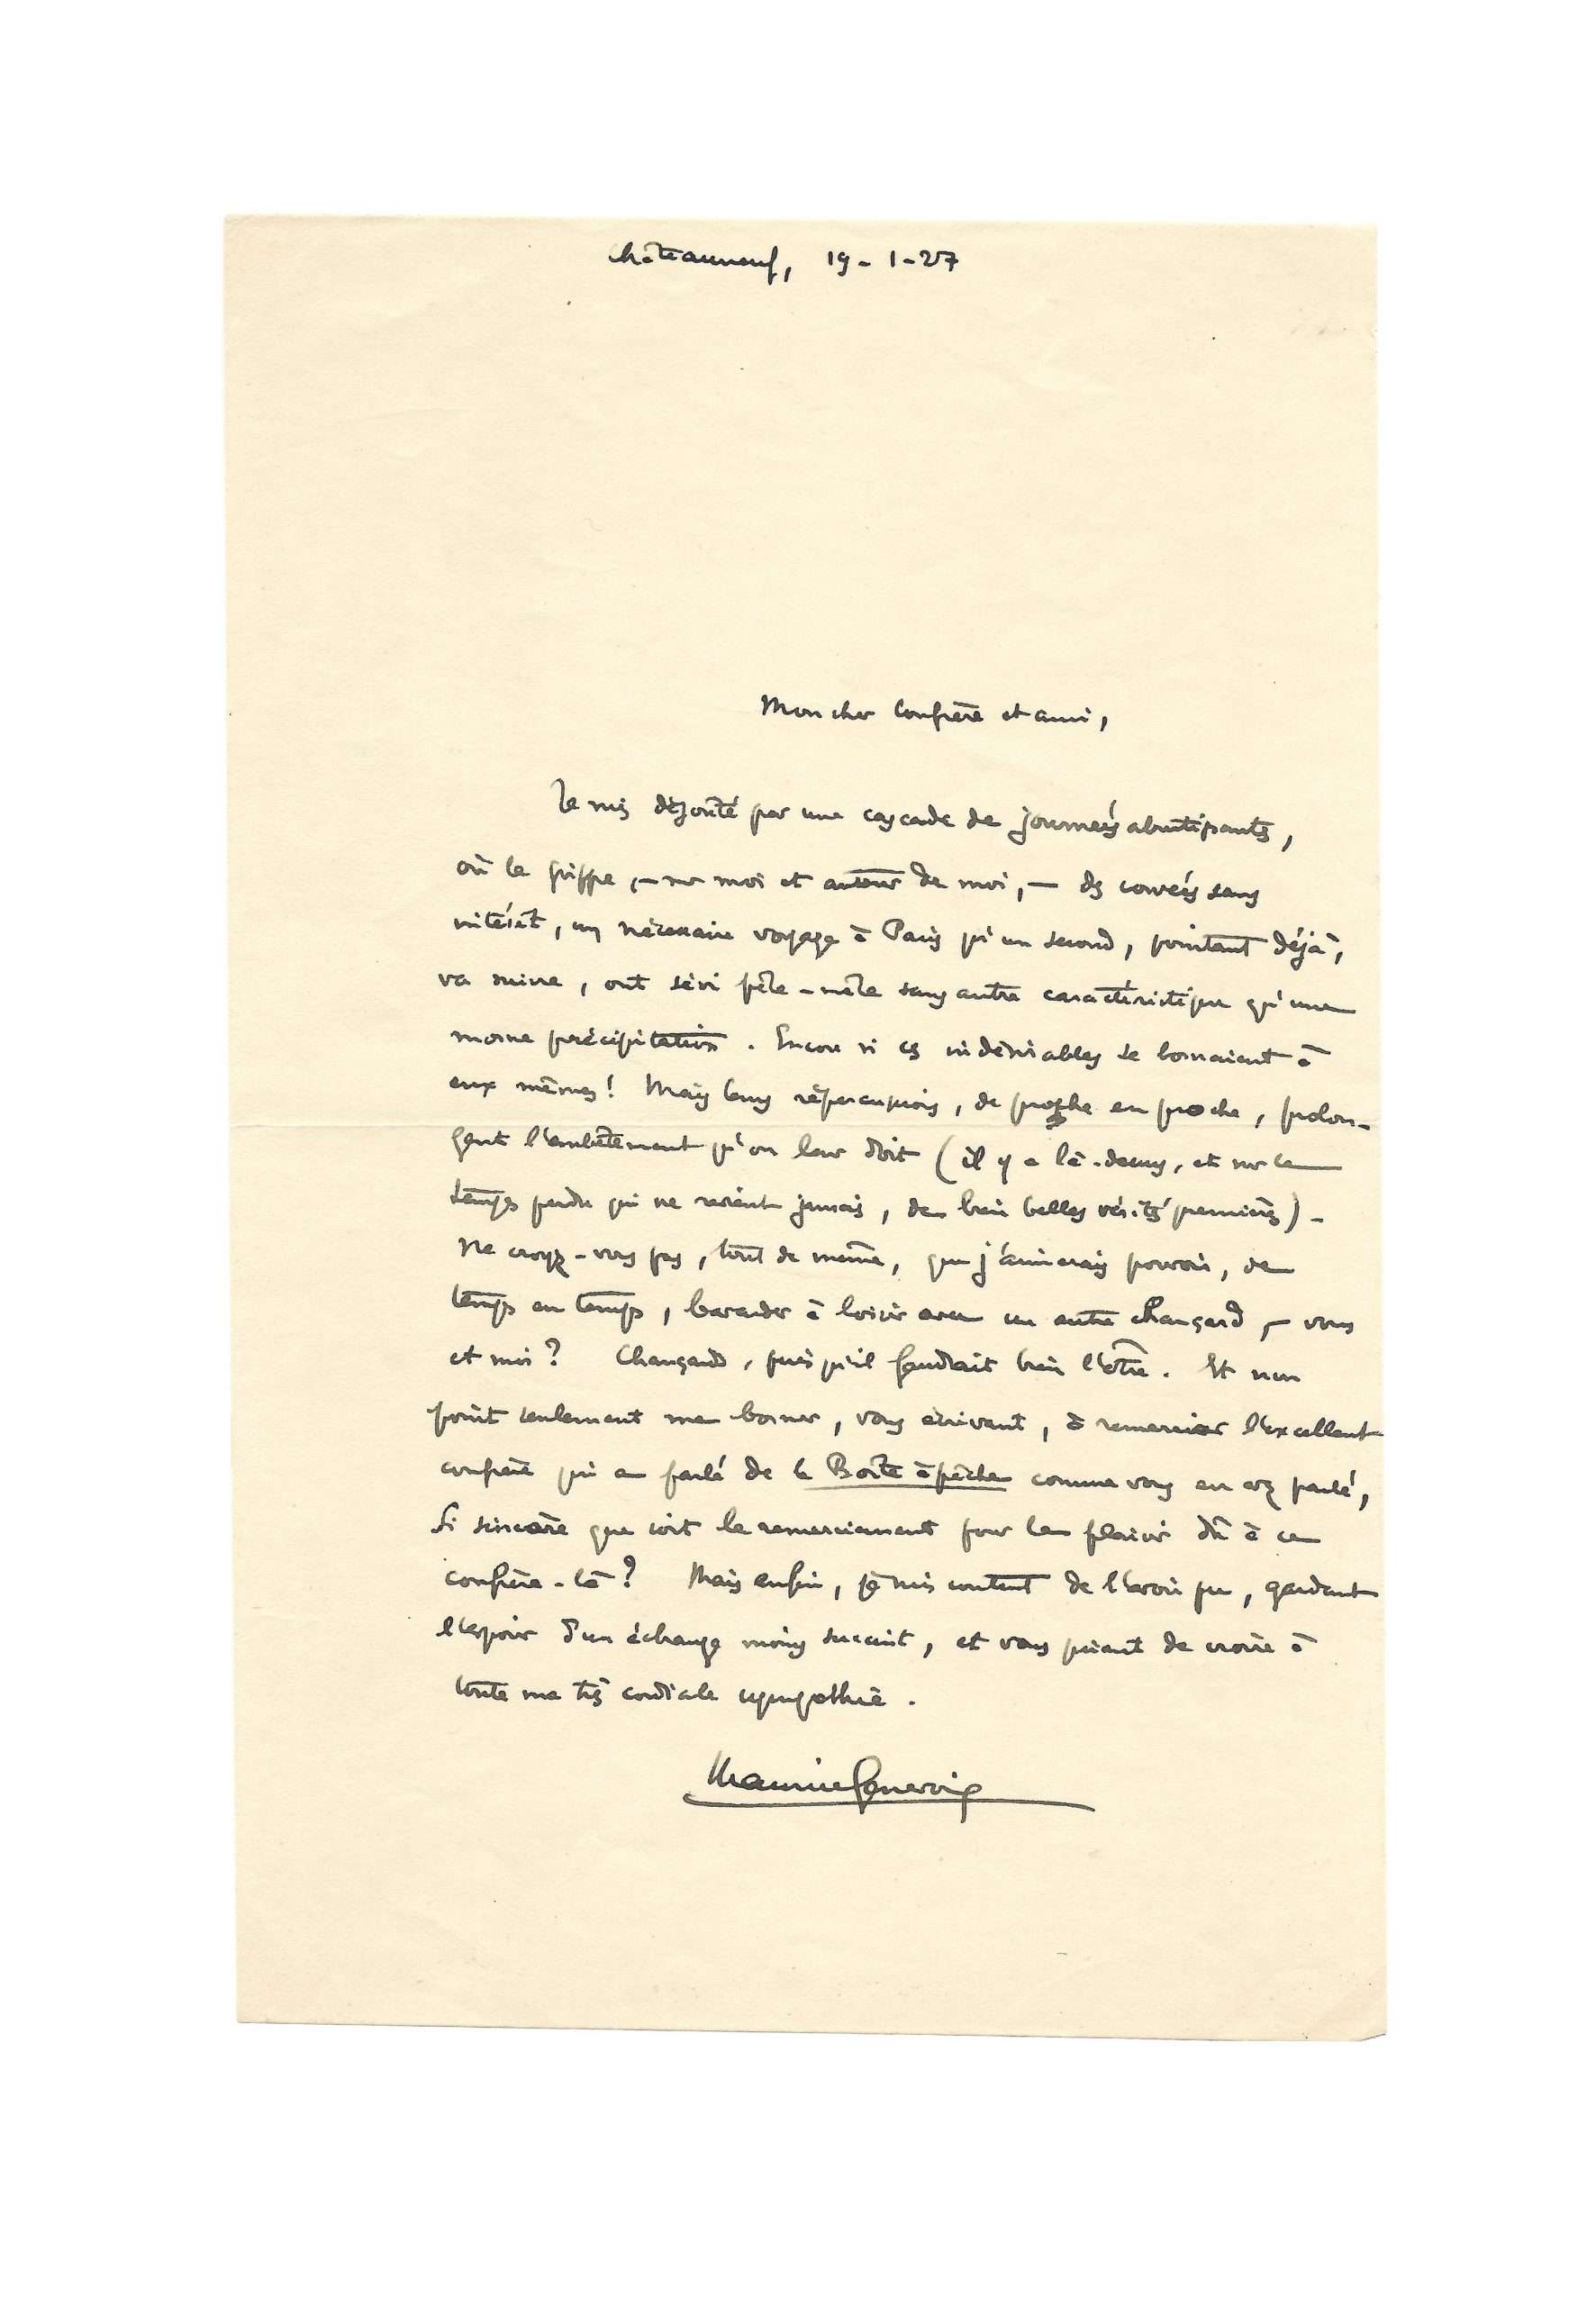 Châteauneuf, 19-1-27
Mon cher Confrère et ami,
Je suis dégoûté par une cascade de journées abrutissantes,
où la grippe, — sur moi et autour de moi, — des corvées sans
intérêt, un nécessaire voyage à Paris qu'un second, pointant déjà,
va suivre, ont sévi pêle-mêle sans autre caractéristique qu'une
morne précipitation. Encore si ces indésirables se bornaient à
eux mêmes ! Mais leurs répercussions, de proche en proche, prolon-
gent l'embêtement qu'on leur doit (il y a là-dessus, et sur le
temps perdu qui ne revient jamais, de bien belles vérités premières) -
Ne croyez-vous pas, tout de même, que j'aimerais pouvoir, de
temps en temps, bavarder à loisir avec un autre chançard, — vous
et moi ? Chançards, puisqu'il faudrait bien l'être. Et non
point seulement me borner, vous écrivant, à remercier l'excellent
confrère qui a parlé de la Boîte à pêche comme vous en avez parlé,
Si sincère que soit le remerciement pour le plaisir dû à ce
confrère-là ? Mais enfin, je suis content de l'avoir pu, gardant
l'espoir d'un échange moins succinct, et vous priant de croire à
toute ma très cordiale sympathie.
Maurice Genevoix